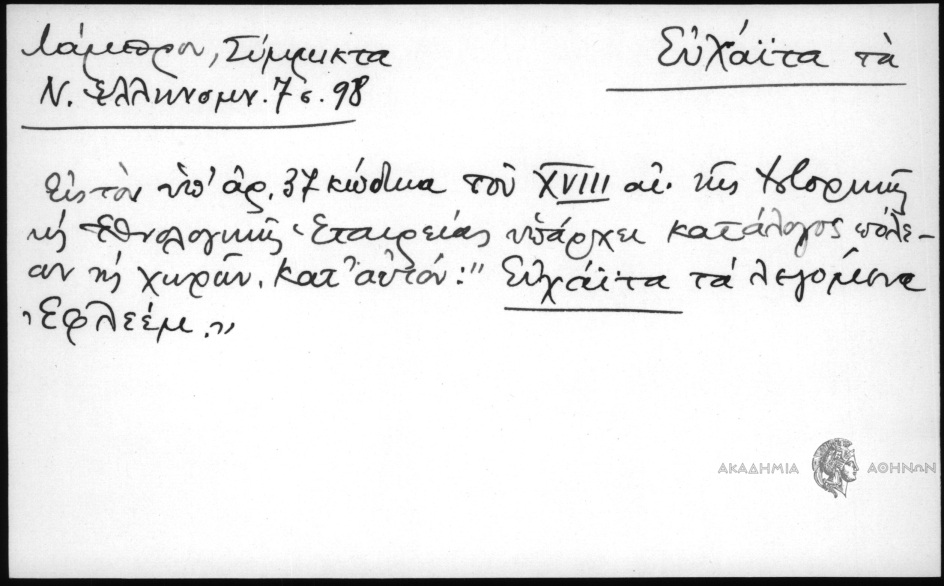 Λάμπρου, Σύμμικτα
Εὐχάϊτα τὰ
Ν. Ἑλληνομν. 7 σ. 98
Εἰς τὸν ὑπ' ἀρ. 37 κώδικα τοῦ XVIII αἰ. τῆς Ἱστορικῆς
κς Ἐθνολογικῆς Ἑταιρείας ὑπάρχει κατάλογος πόλε-
ων κς χωρῶν. Κατ' αὐτόν: " Εὐχάϊτα τά λεγόμενα
Ἐφλεέμ."
ΑΚΑΔΗΜΙΑ ΑΘΗΝΩΝ